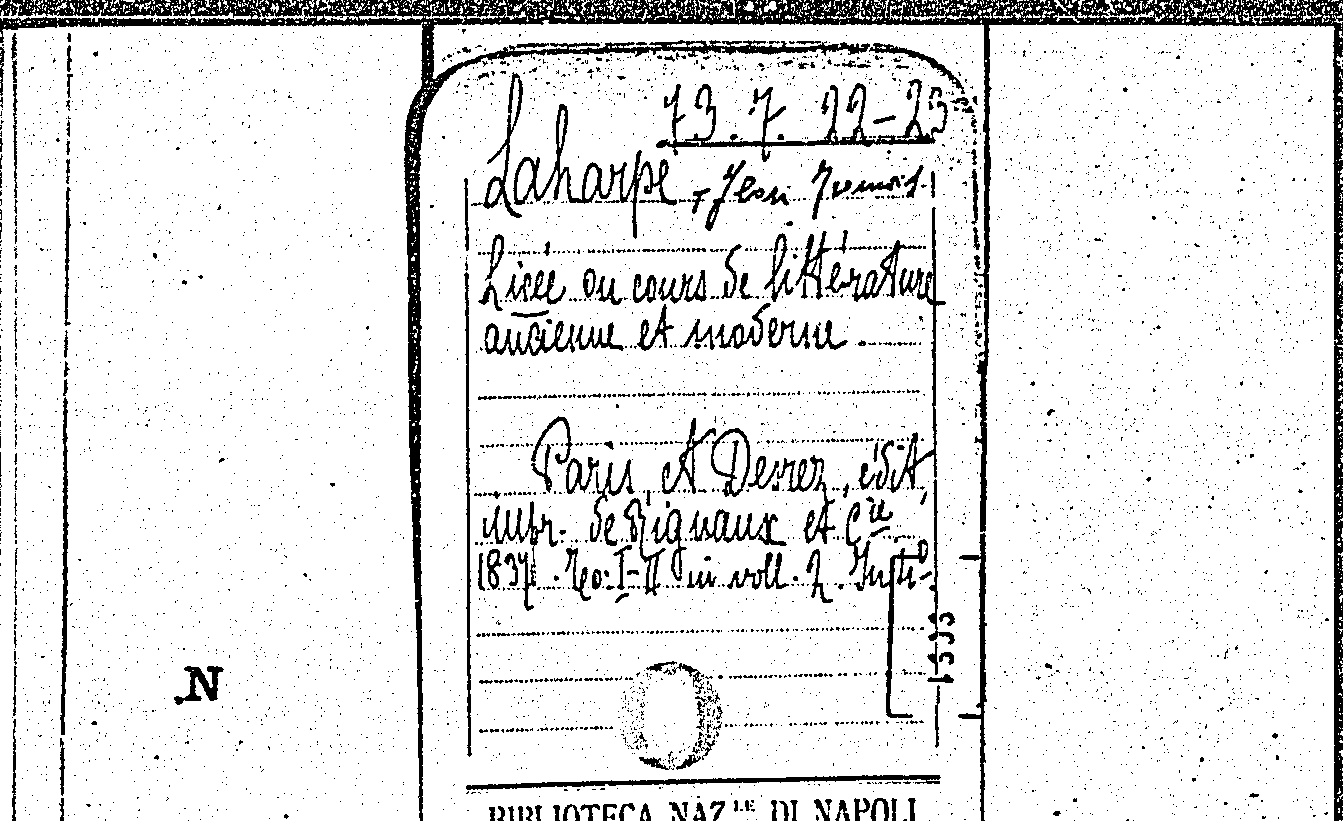 73.7. 22-23
Laharpe, Jean
Licée ou cours de littérature
ancienne et moderne.
Paris, A Desrez, édit,
impr. de Rignoux et Cie
1837. To: I-II in voll. 2. In
1593
N
BIBLIOTECA NAZ.LE DI NAPOLI